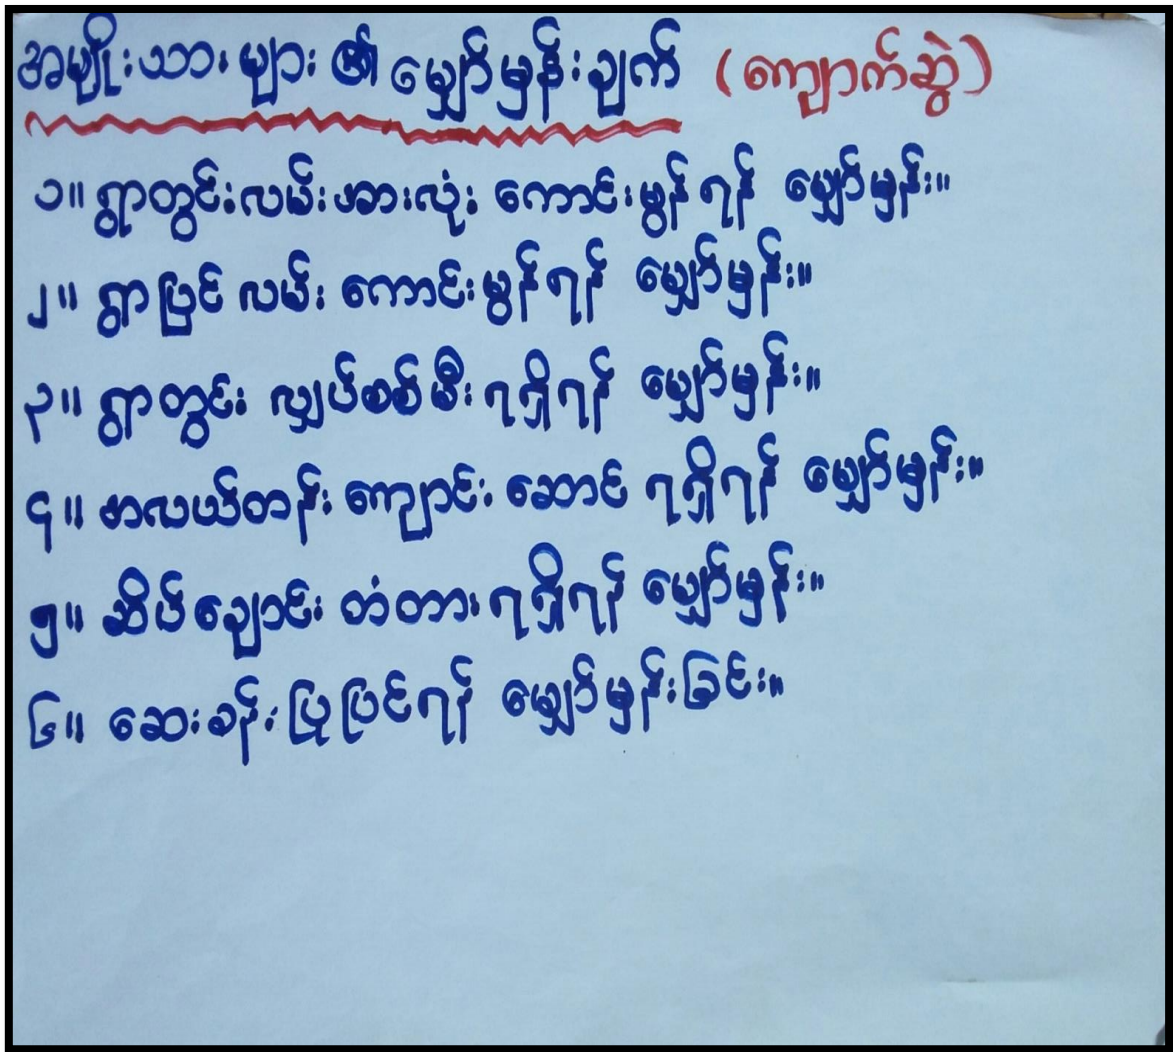 အမျိုးသားများ၏ မျှော်မှန်းချက် (ကျောက်ဆွဲ)
၁။ ရွာတွင်းလမ်းအားလုံး ကောင်းမွန်ရန် မျှော်မှန်း။
၂။ ရွာပြင်လမ်း ကောင်းမွန်ရန် မျှော်မှန်း။
၃။ ရွာတွင်း လျှပ်စစ်မီးရရှိရန် မျှော်မှန်း။
၄။ အလယ်တန်း ကျောင်းဆောင် ရရှိရန် မျှော်မှန်း။
၅။ ဆိပ်ချောင်း တံတားရရှိရန် မျှော်မှန်း။
၆။ ဆေးခန်းပြုပြင်ရန် မျှော်မှန်းခြင်း။